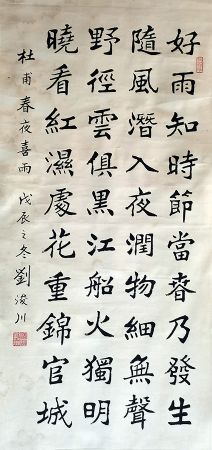 好雨知時節當春乃發生
隨風潛入夜潤物細無聲
野徑雲俱黑江船火獨明
曉看紅濕處花重錦官城
杜甫春夜喜雨 戊辰之冬 劉浚川